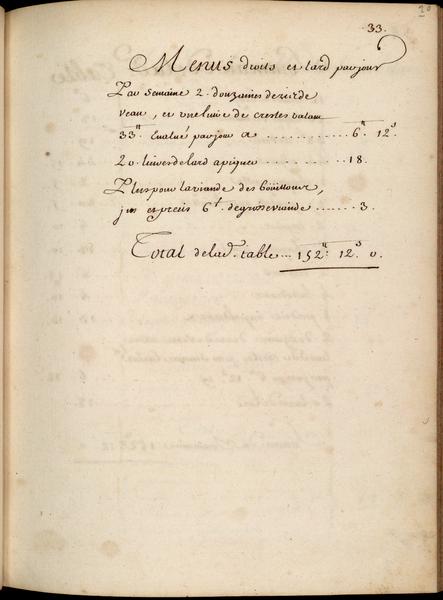 33.
Menus droits et lard par jour
Par semaine 2. douzaines de ris de
veau, et une livre de crestes valant
33ᵗᵗ Evalué par jour a .......... 6ᵗᵗ 12ˢ
20 livres de lard a piquer .......... 18.
Plus pour la viande des boüillons,
jus et precis 6ᵗ. de grosse viande ....... 3.
Total de lad. table ... 152ᵗᵗ 12ˢ 0.